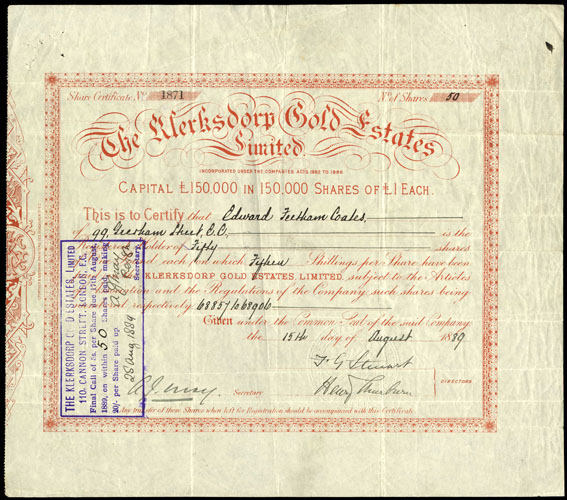 Share Certificate, No 1871 No of Shares 50
The Klerksdorp Gold Estates
Limited.
INCORPORATED UNDER THE COMPANIES ACTS 1862 TO 1886
CAPITAL £150,000 IN 150,000 SHARES OF £1 EACH.
This is to Certify that Edward Feetham Coates
of 99, Gresham Street, E.C. is the
holder of Fifty shares
each on which Fifteen Shillings per Share have been
KLERKSDORP GOLD ESTATES, LIMITED, subject to the Articles
and the Regulations of the Company such shares being
respectively 68857 to 68906
Given under the Common Seal of the said Company
the 15th day of August 1889
F G Stewart
Henry Thurburn
DIRECTORS
Secretary
transfer of these Shares when left for Registration should be accompanied with this Certificate
THE KLERKSDORP GOLD ESTATES, LIMITED
110, CANNON STREET, LONDON, E.C.
Final Call of 5s. per Share due 17th August,
1889, on within 50 Shares paid, making
20/- per Share paid up
28 Aug 1889
Secretary